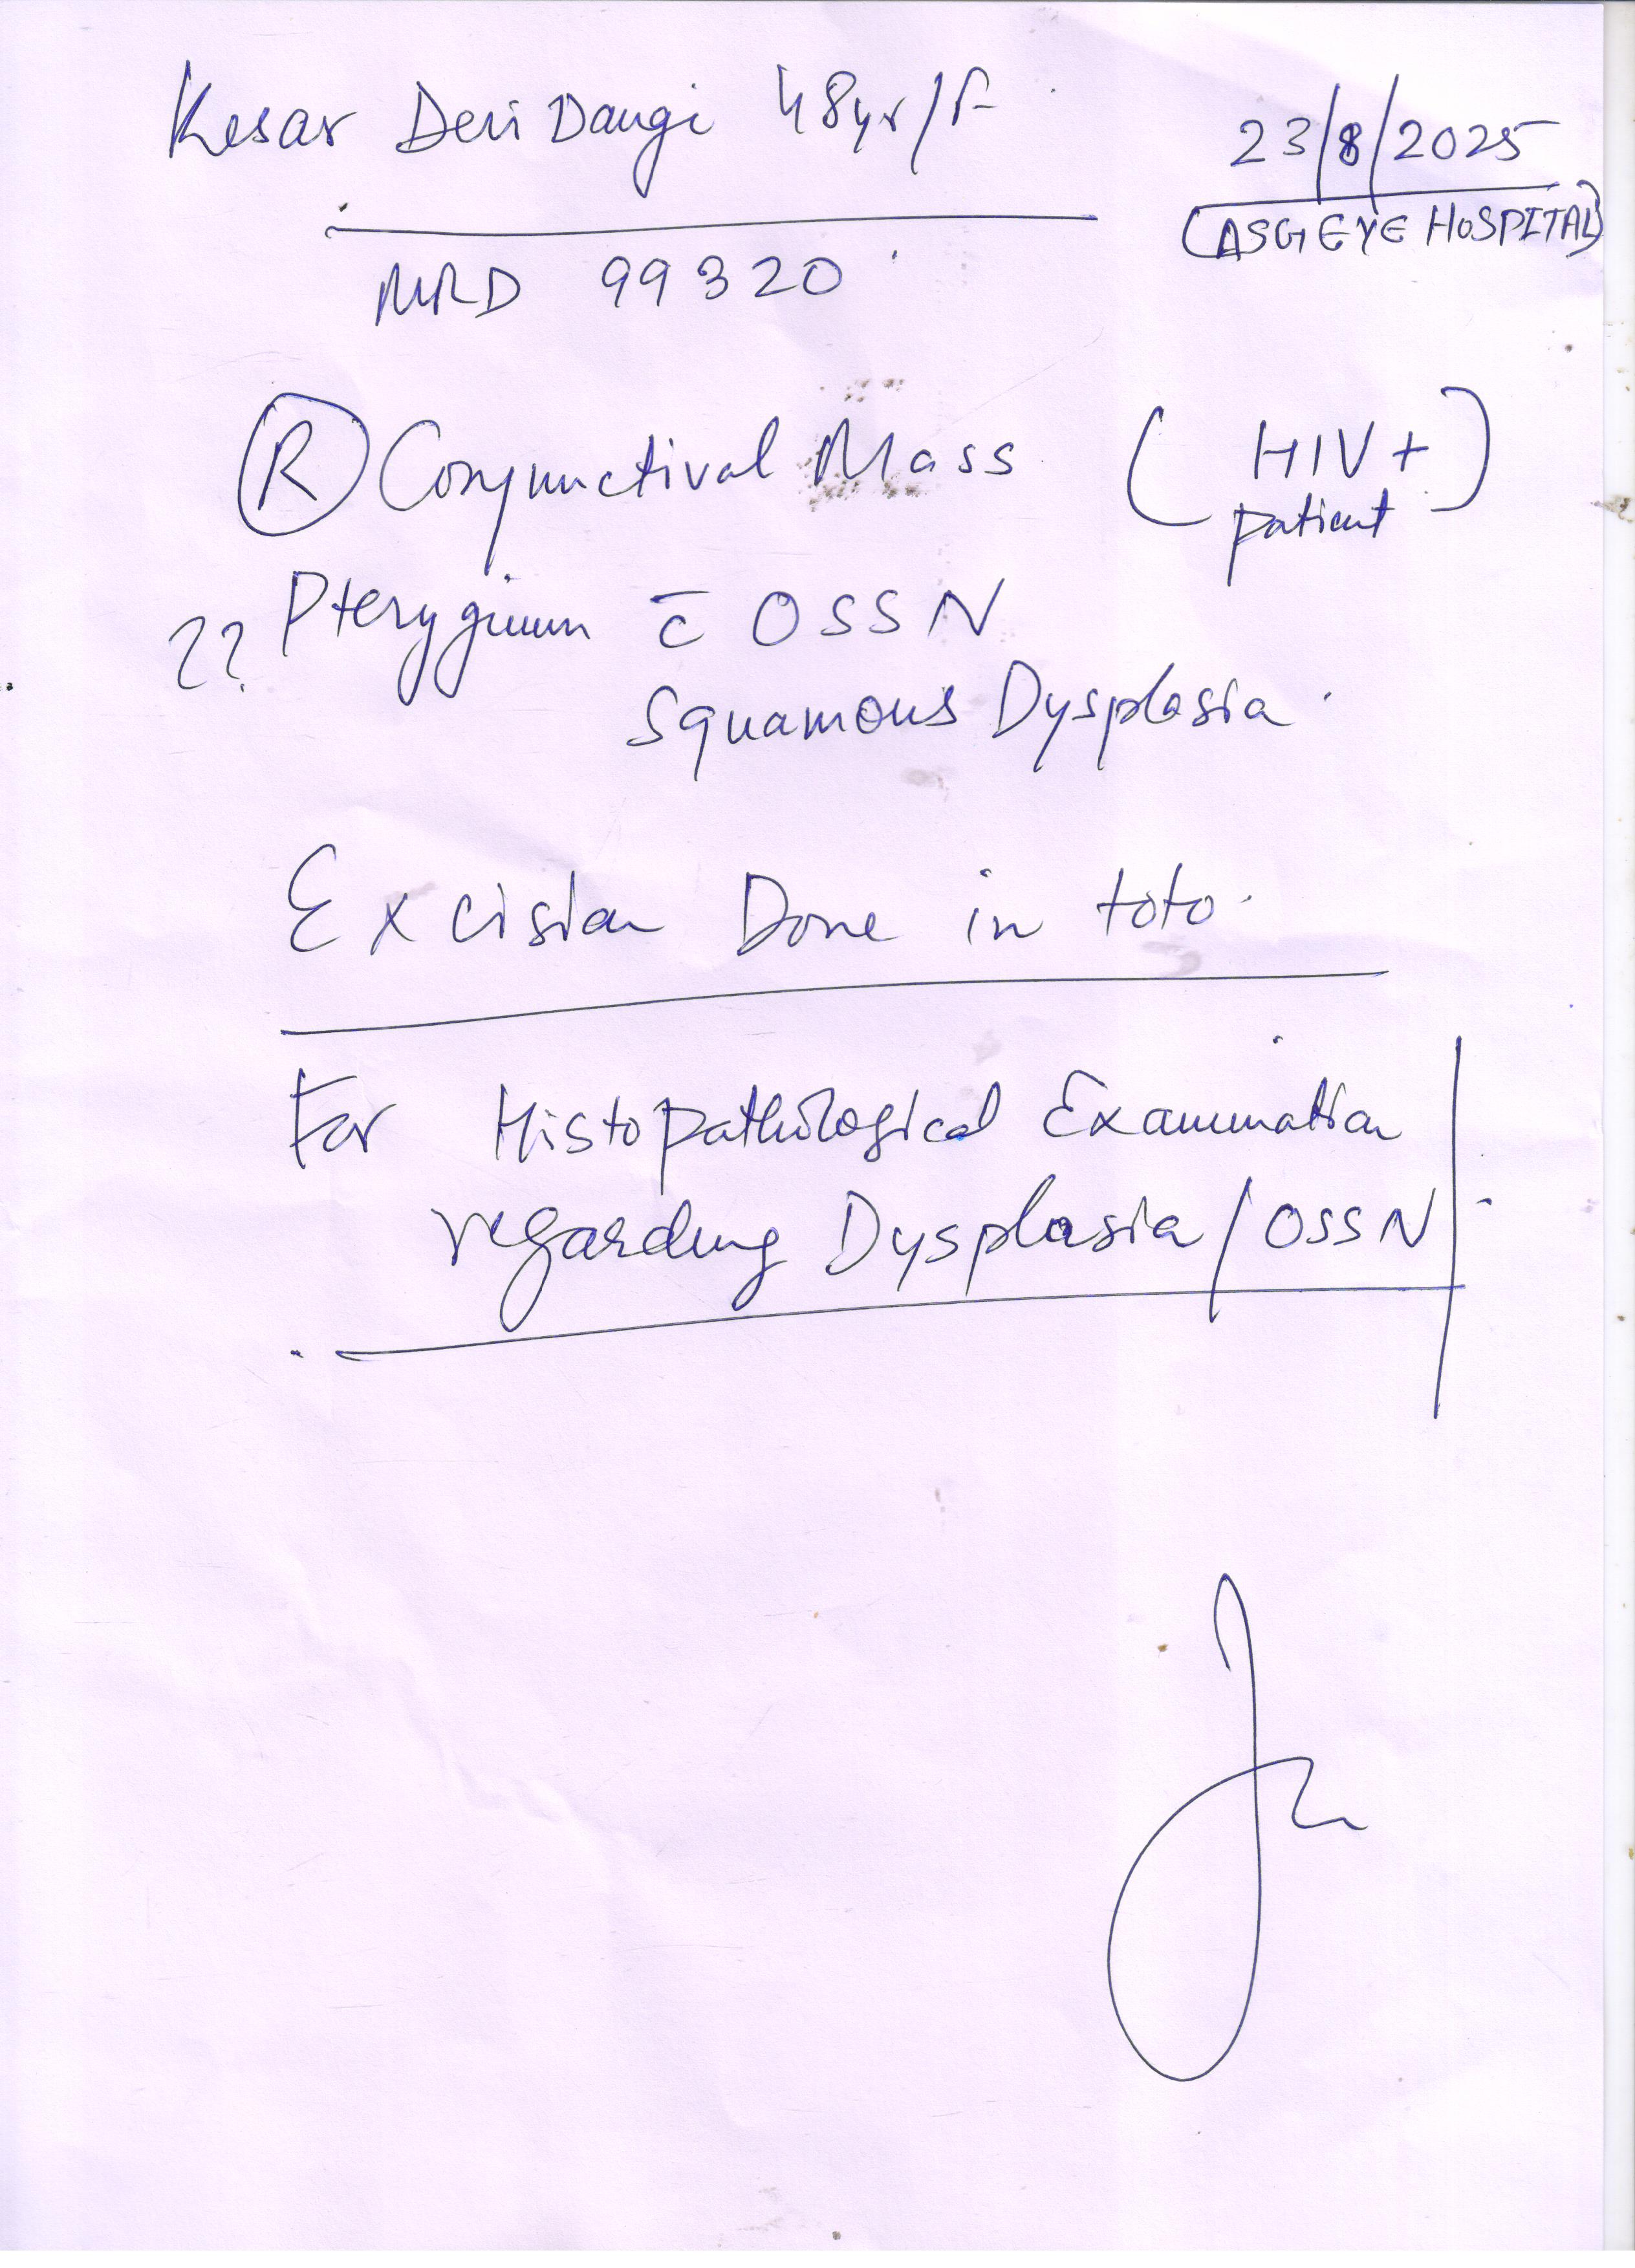 Kesar Devi Dangi 48yr/F
23/8/2025
(ASG EYE HOSPITAL)
MRD 99320
(R) Conjunctival Mass (HIV+
patient)
?? Pterygium c̄ OSSN
Squamous Dysplasia.
Excision Done in toto.
For Histopathological Examination
regarding Dysplasia/OSSN